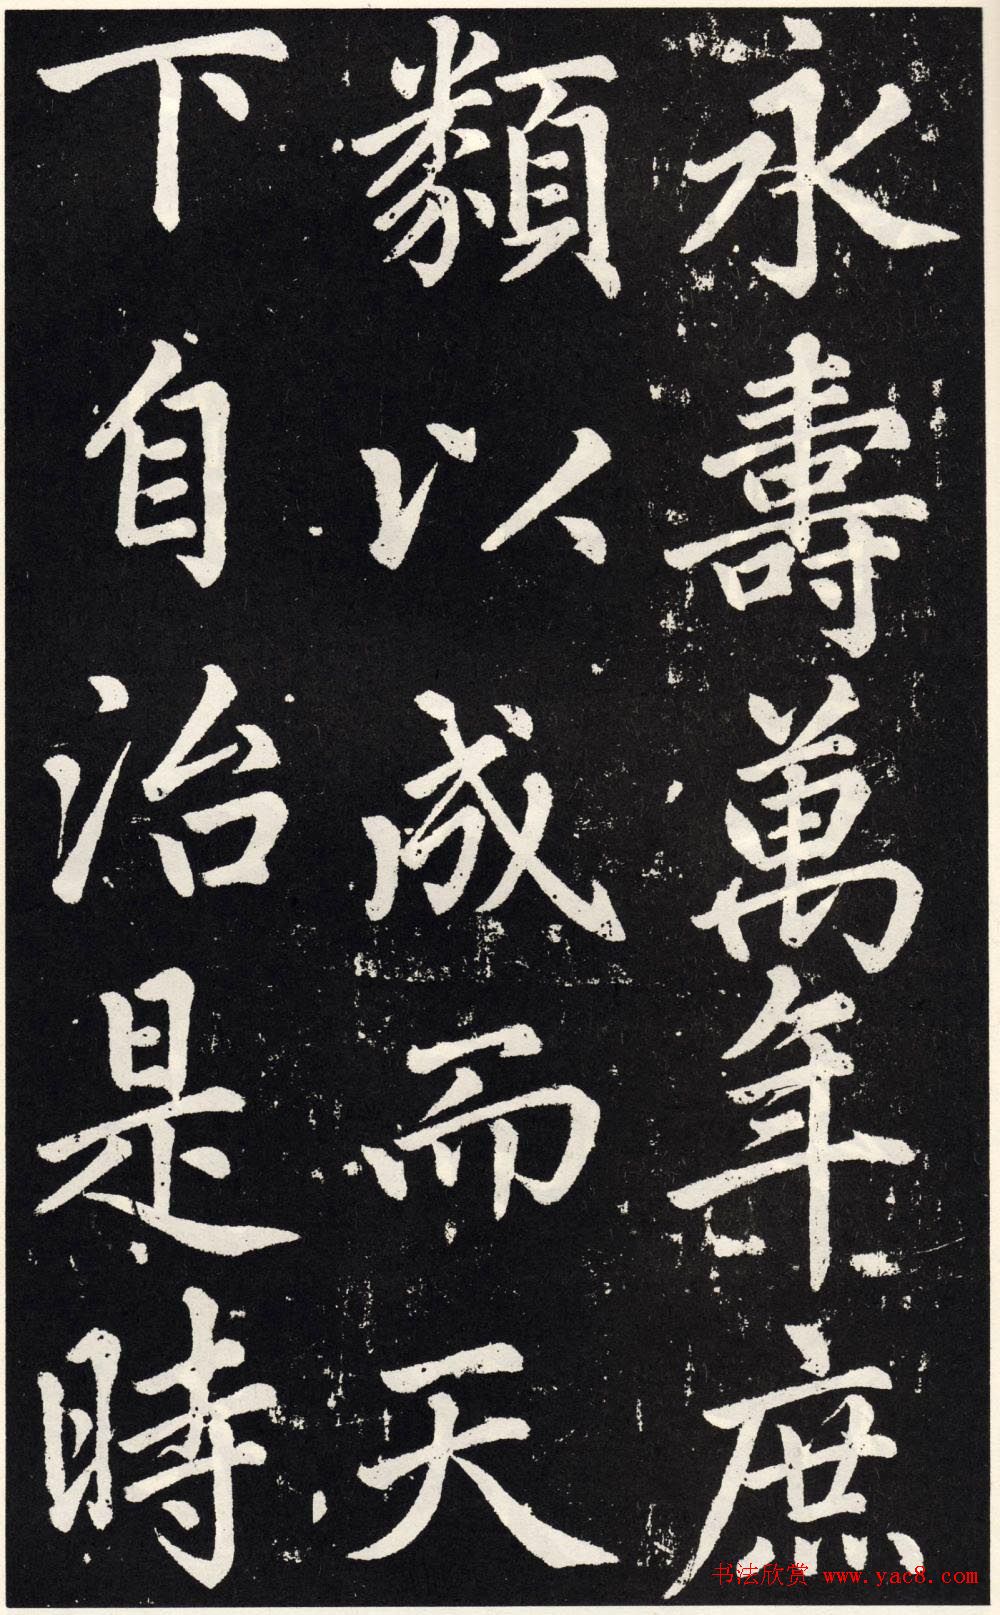 永壽萬年庶
類以成而天
下自治是時
书法欣赏 www.yac8.com